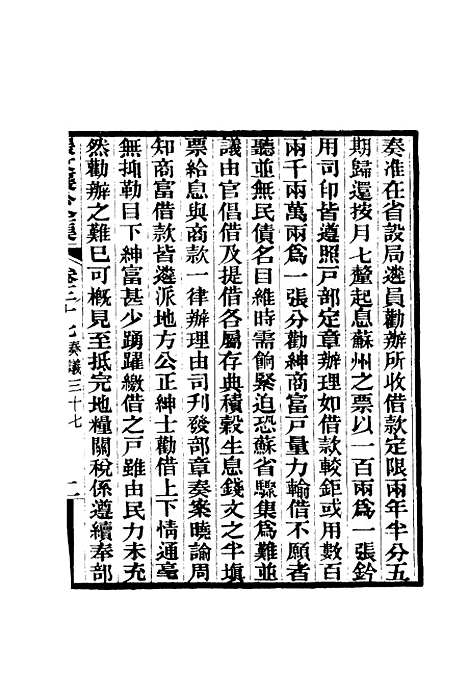 奏准在省設局遴員勸辦所收借款定限兩年半分五
期歸還按月七釐起息蘇州之票以一百兩爲一張鈐
用司印皆遵照戶部定章辦理如借款較鉅或用數百
兩千兩萬兩爲一張分勸紳商富戸量力輸借不願者
聽並無民債名目維時需餉緊迫恐蘇省驟集爲難並
議由官倡借及提借各屬存典積穀生息錢文之半填
票給息與商款一律辦理由司刊發部章奏案曉諭周
知商富借款皆遴派地方公正紳士勸借上下情通毫
無抑勒目下紳富甚少踴躍繳借之戸雖由民力未充
然勸辦之難已可槪見至抵完地糧關稅係遵續奉部
卷三十七奏議三十七 二